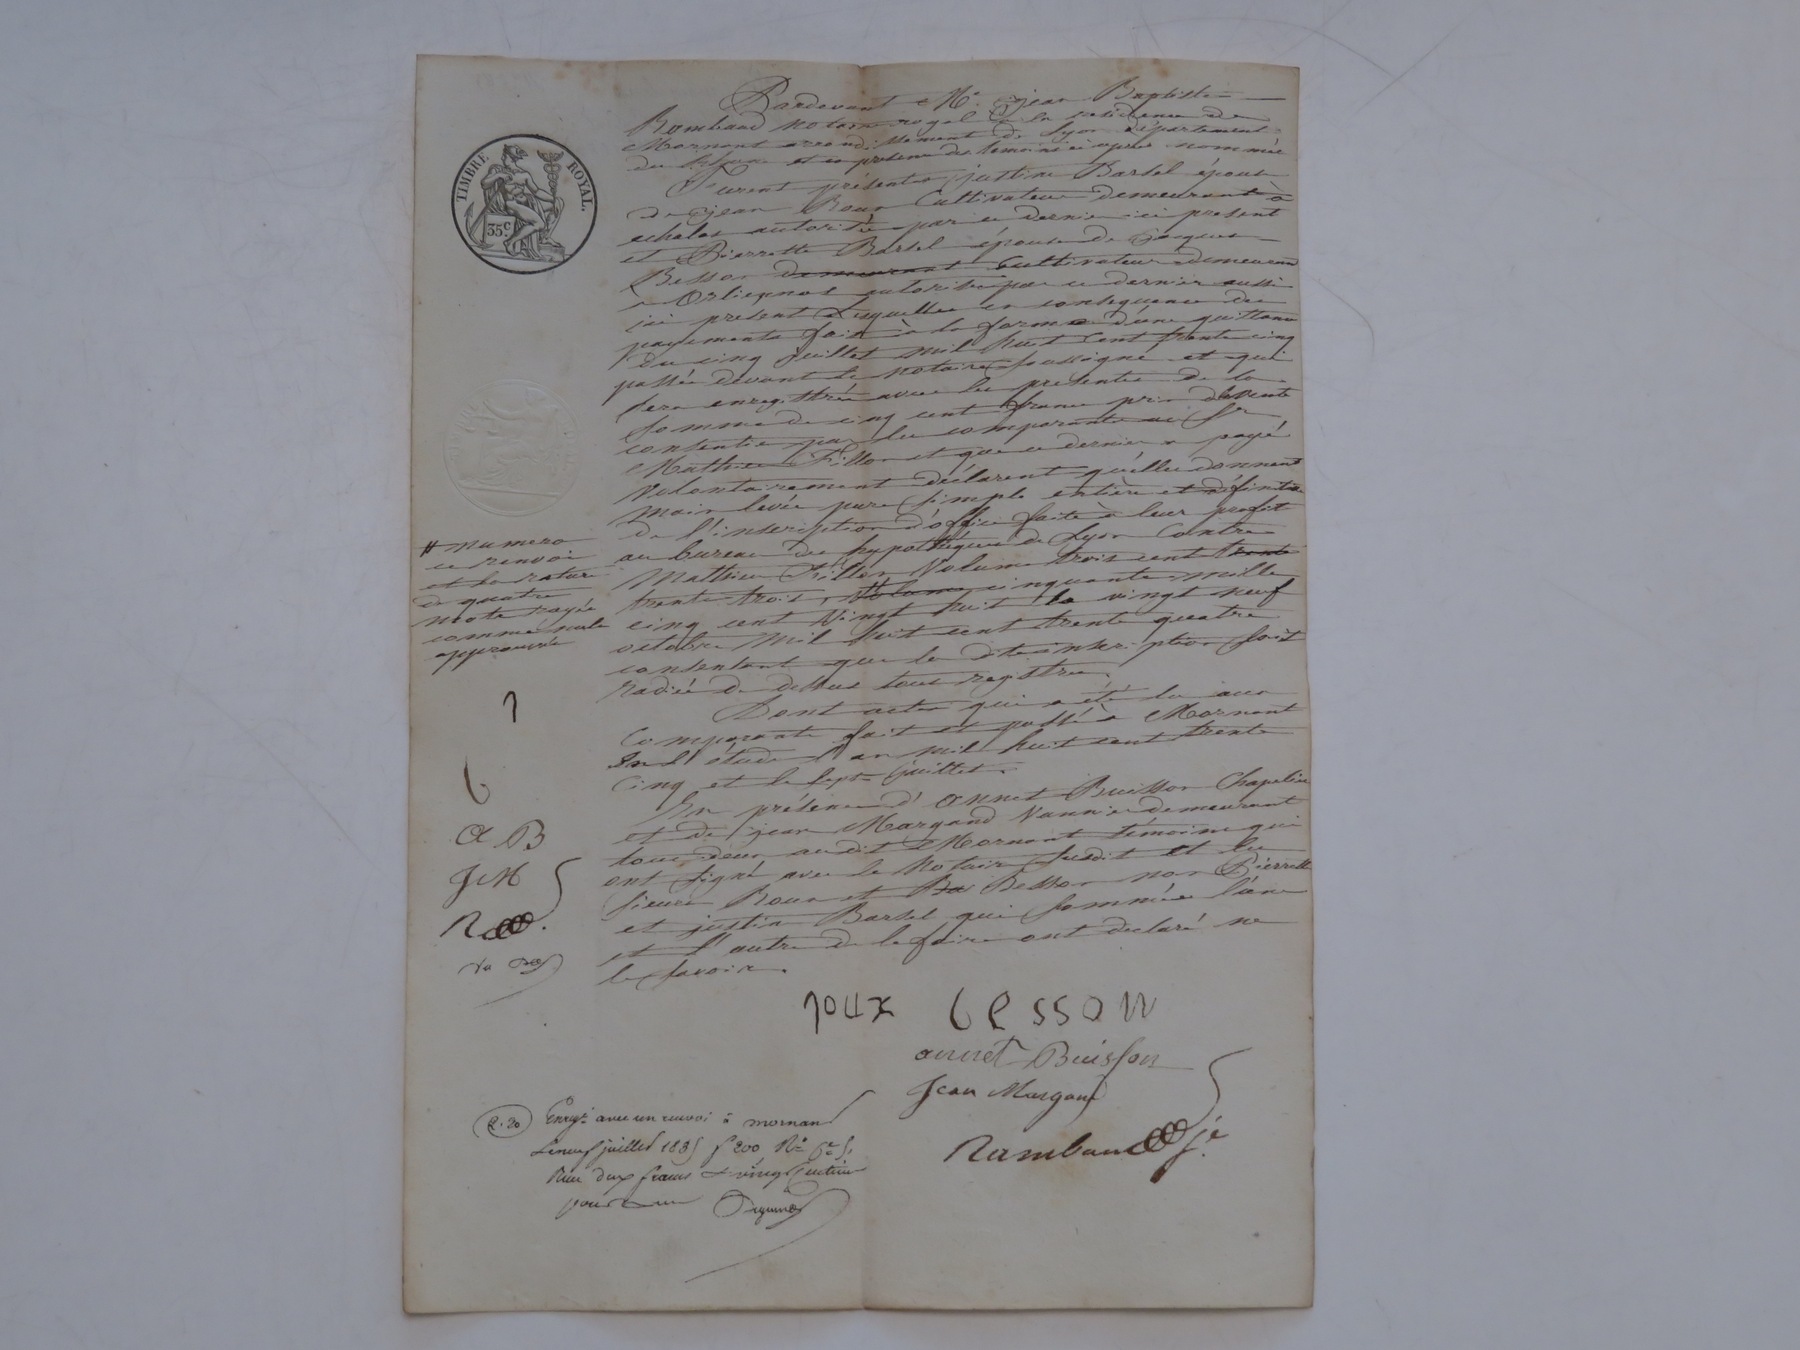 TIMBRE ROYAL.
35c.
Pardevant Me. jean Baptiste
Rambaud notaire royal à la résidence de
Mornant arrondissement de Lyon département
du Rhone et en présence des temoins ci après nommés
Furent présentes justine Bartel épouse
de jean Roux Cultivateur demeurant à
echalas autorisée par ce dernier ici present
et Pierrette Bartel épouse de jacques
Besson demeurant Cultivateur demeurant
a Orlienas autorisée par ce dernier aussi
ici present Lesquelles en consequence du
payement fait à la forme d'une quittance
du cinq juillet mil huit cent trente cinq
passée devant le notaire soussigné et qui
sera enregistrée avec les presentes de la
somme de cinq cent francs prix de vente
consentie par les comparantes au Sr
Mathieu Fillon et que ce dernier a payé
Volontairement déclarent qu'elles donnent
main levée pure simple entière et définitive
de l'inscription d'office faite à leur profit
au bureau des hypothèques de Lyon Contre
Mathieu Fillon Volume trois cent trente
trente trois, Volume cinquante mille
cinq cent Vingt huit le vingt neuf
octobre mil huit cent trente quatre
consentant que la dite inscription soit
radiée de dessus tous registres.
# numero
ce renvoi
et la rature
de quatre
mots rayés
comme nuls
approuvés
Dont acte qui a été lu aux
Comparants fait et passé à Mornant
En l'étude l'an mil huit cent trente
Cinq et le sept juillet.
En présence d'annet Buisson Chapelier
et de jean Margand Vannier demeurant
tous deux audit Mornant témoins qui
ont signé avec le Notaire susdit et les
sieurs Roux et Ba Besson non Pierrette
et justine Bartel qui sommées l'une
et l'autre de le faire ont declaré ne
le savoir.
b
a B
J M
R
roux besson
annet Buisson
Jean Margand
Rambaud
R. 20
Enregé. avec un renvoi à mornant
Le neuf juillet 1835 fo 200 Ro
Reçu deux francs vingt centimes
pour